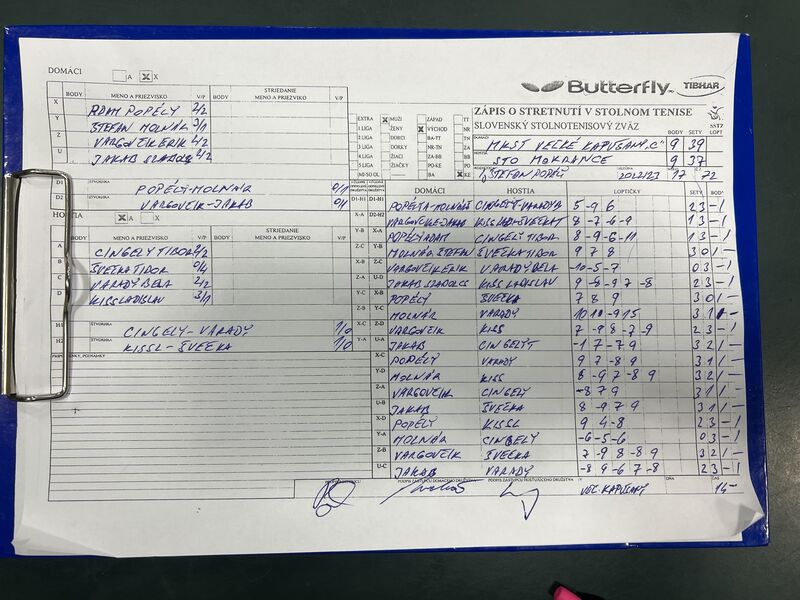 DOMÁCI A X
STRIEDANIE
BODY MENO A PRIEZVISKO V/P BODY MENO A PRIEZVISKO V/P
X ADAM POPÉLY 2/2
Y ŠTEFAN MOLNÁR 3/1
Z VARGOVČIK ERIK 2/2
U JAKAB SZABOLCS 2/2
D1 ŠTVORHRA POPÉLY-MOLNÁR 0/1
D2 ŠTVORHRA VARGOVČIK-JAKAB 0/1
HOSTIA A X
STRIEDANIE
BODY MENO A PRIEZVISKO V/P BODY MENO A PRIEZVISKO V/P
A CINGELY TIBOR 2/2
B ŠVEČKA TIBOR 0/4
C VARADY BELA 2/2
D KISS LADISLAV 3/1
H1 ŠTVORHRA CINGELY-VARADY 1/0
H2 ŠTVORHRA KISSL-ŠVEČKA 1/0
PRIPOMIENKY, POZNÁMKY
Butterfly TIBHAR
ZÁPIS O STRETNUTÍ V STOLNOM TENISE
SLOVENSKÝ STOLNOTENISOVÝ ZVÄZ
SSTZ
EXTRA MUŽI ZÁPAD TT
I. LIGA ŽENY VÝCHOD NR
2 LIGA DORCI BA-TT TN
3 LIGA DORKY NR-TN ZA
4 LIGA ŽIACI ZA-BB PO
5 LIGA ŽIAČKY PO-KE BB
M-SO OL BA KE
BODY SETY LOPT
DOMÁCI MKST VEĽKÉ KAPUŠANY "C" 9 39
HOSTIA STO MOKRANCE 9 37
ŠTEFAN POPÉLY 2022/23 17 22
DOMÁCI HOSTIA LOPTIČKY SETY BODY
D1-H1 POPÉLY A-MOLNÁR Š CINGELY-VARADY 5 -9 6 2 3 -1
D2-H2 VARGOVČIK E-JAKAB KISS LADI-ŠVEČKA T 8 -7 -6 -9 1 3 -1
X-A POPÉLY ADAM CINGELY TIBOR 8 -9 -6 -11 1 3 -1
Y-B MOLNÁR ŠTEFAN ŠVEČKA TIBOR 9 7 8 3 0 1-
Z-C VARGOVČIK ERIK VARADY BELA -10 -5 -7 0 3 -1
U-D JAKAB SZABOLCS KISS LADISLAV 9 -8 -9 7 -8 2 3 -1
X-B POPÉLY ŠVEČKA 7 8 9 3 0 1-
Y-C MOLNÁR VARADY 10 10 -9 15 3 1 1-
Z-D VARGOVČIK KISS 7 -9 8 -7 -9 2 3 -1
U-A JAKAB CINGELY T -1 7 -7 9 2 3 -1
X-C POPÉLY VARADY 9 7 -8 9 3 1 1-
Y-D MOLNÁR KISS 8 -9 7 8 -8 9 3 2 1-
Z-A VARGOVČIK CINGELY -8 7 9 3 1 1-
U-B JAKAB ŠVEČKA 8 -9 7 9 3 1 1-
X-D POPÉLY KISSL 9 4 -8 2 3 -1
Y-A MOLNÁR CINGELY -6 -5 -6 0 3 -1
Z-B VARGOVČIK ŠVEČKA 7 -9 8 -8 9 3 2 1-
U-C JAKAB VARADY -8 9 -6 7 -8 2 3 -1
PODPIS ZÁSTUPCU DOMÁCEHO DRUŽSTVA PODPIS ZÁSTUPCU HOSŤUJÚCEHO DRUŽSTVA V DŇA ČAS
VEĽ. KAPUŠANY 14-